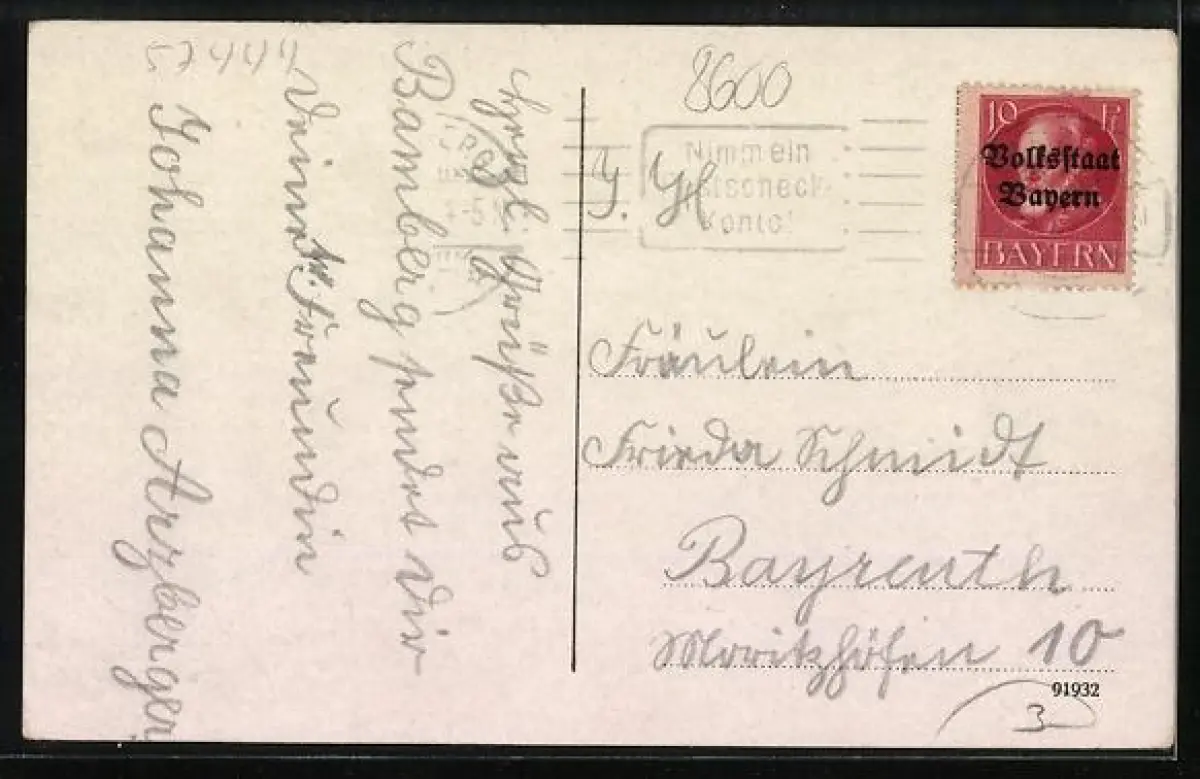 57444
Herzl. Grüße aus
Bamberg sendet dir
Deine tr. Freundin
Johanna Arzberger.
8600
Nimm ein
Konto!
10 Pf
Volksstaat
Bayern
BAYERN
Fräulein
Frieda Schmidt
Bayreuth
Moritzhöfen 10
91932
3